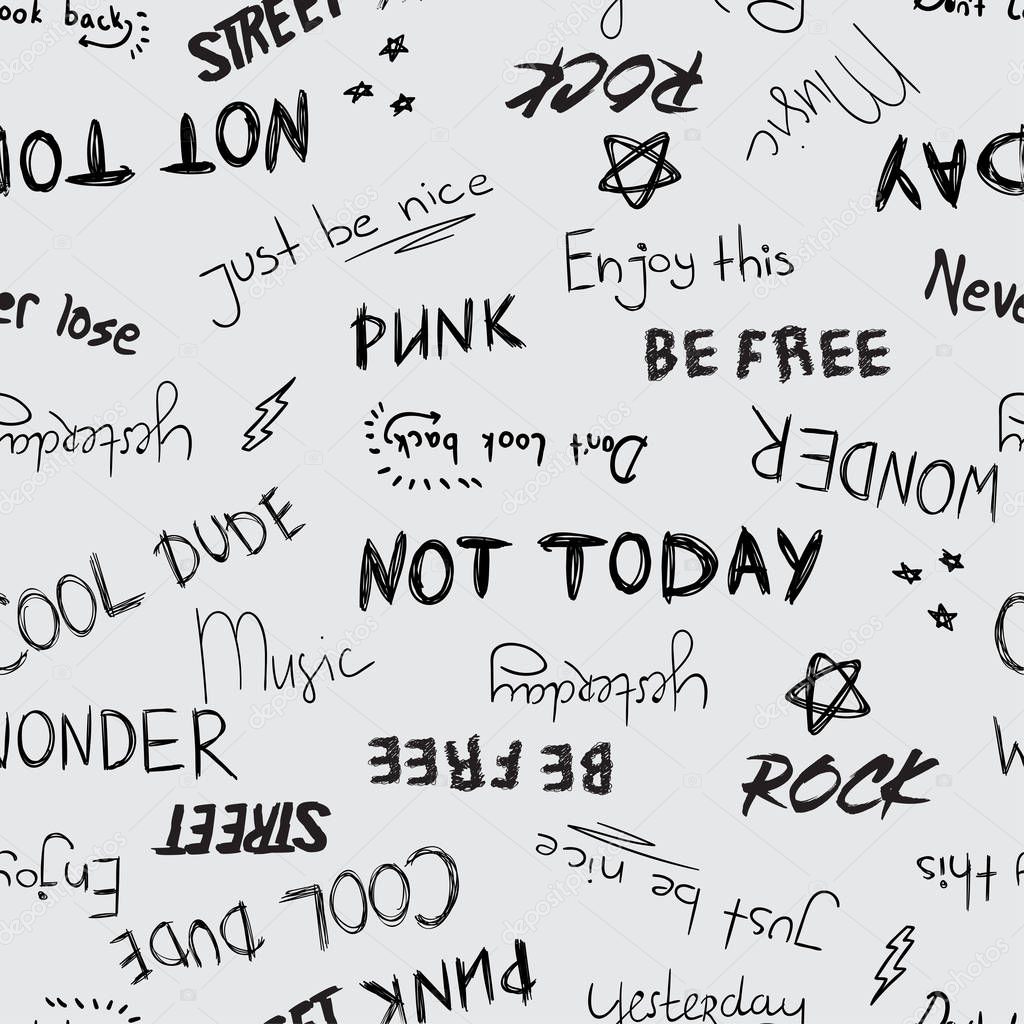 ook back
STREET
Don't L
ROCK
Music
NOT TOD
DAY
just be nice
Enjoy this
er lose
Neve
PUNK
BE FREE
yesterday
Don't Look back
WONDER
COOL DUDE
NOT TODAY
Music
yesterday
WONDER
BE FREE
ROCK
STREET
Enjoy
just be nice
y this
COOL DUDE
PUNK
yesterday